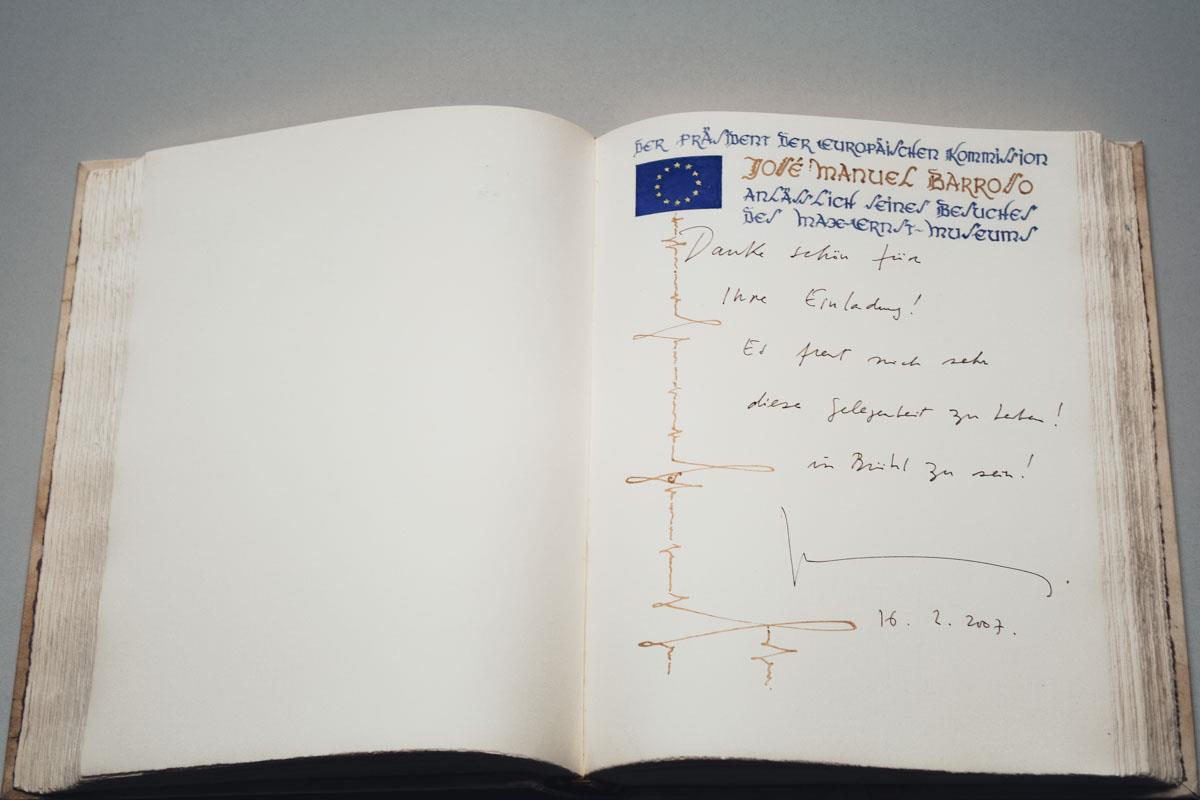 Der Präsident der Europäischen Kommission
José Manuel Barroso
anlässlich seines Besuches
des Max-Ernst-Museums
Danke schön für
Ihre Einladung!
Es freut mich sehr
diese Gelegenheit zu haben!
in Brühl zu sein!
16. 2. 2007.